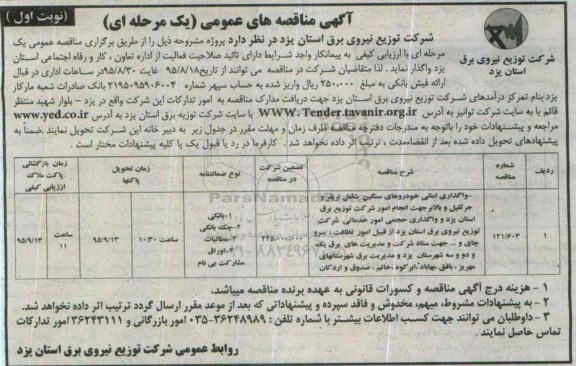 آگهی مناقصه های عمومی (یک مرحله ای)
(نوبت اول)
شرکت توزیع نیروی برق استان یزد
شرکت توزیع نیروی برق استان یزد در نظر دارد پروژه مشروحه ذیل را از طریق برگزاری مناقصه عمومی یک
مرحله ای با ارزیابی کیفی به پیمانکار واجد شرایط دارای تائید صلاحیت فعالیت از اداره تعاون ، کار و رفاه اجتماعی استان
یزد واگذار نماید . لذا متقاضیان شرکت در مناقصه می توانند از تاریخ ۹۵/۸/۱۸ غایت ۹۵/۸/۳۰ در ساعات اداری در قبال
ارائه فیش بانکی به مبلغ ۲۵۰,۰۰۰ ریال واریز شده به حساب سپهر شماره بانک صادرات شعبه مارکار
یزد بنام تمرکز درآمدهای شرکت توزیع نیروی برق استان یزد جهت دریافت مدارک مناقصه به امور تدارکات این شرکت واقع در یزد - بلوار شهید منتظر
قائم یا به سایت شرکت توانیر به آدرس WWW.Tender.tavanir.org.ir یا سایت شرکت توزیع برق استان یزد به آدرس www.yed.co.ir
مراجعه و پیشنهادات خود را باتوجه به مندرجات دفترچه مناقصه ظرف زمان و مهلت مقرر در جدول زیر به دبیر خانه این شرکت تحویل نمایند .ضمناً به
پیشنهادهای تحویل داده شده بعد از انقضاءمدت ، ترتیب اثر داده نخواهد شد . کارفرما در رد یا قبول یک یا کلیه پیشنهادات مختار است .
ردیف
شماره مناقصه
شرح مناقصه
تضمین شرکت در مناقصه
نوع ضمانتنامه
زمان تحویل پاکتها
زمان بازگشائی پاکت ملاک ارزیابی کیفی
۱
۱۲۱/۶۰۳
واگذاری امانی خودروهای سنگین شامل تریلر و
جرثقیل و بالابر جهت انجام امور شرکت توزیع برق
استان یزد و واگذاری حجمی امور خدماتی شرکت
توزیع نیروی برق استان یزد از قبیل امور نظافت ، سرو
چای و ... جهت ستاد شرکت و مدیریت های برق یک
و دو و سه شهرستان یزد و مدیریت برق شهرستانهای
مهریز ، بافق ،بهاباد ،ابرکوه ،خاتم ، صدوق و اردکان
۱-بانکی
۲-چک بانکی
۳-مطالبات
۴-اوراق
مشارکت بی نام
ساعت ۱۰:۳۰
۹۵/۹/۱۳
ساعت ۱۱
۹۵/۹/۱۳
ParsNamadData
۱ - هزینه درج آگهی مناقصه و کسورات قانونی به عهده برنده مناقصه میباشد.
۲ - به پیشنهادات مشروط، مبهم، مخدوش و فاقد سپرده و پیشنهاداتی که بعد از موعد مقرر ارسال گردد ترتیب اثر داده نخواهد شد.
۳ - داوطلبان می توانند جهت کسب اطلاعات بیشتر با شماره تلفن : ۳۶۲۴۸۹۸۹-۰۳۵ امور بازرگانی و ۳۶۲۴۳۱۱۱ امور تدارکات
تماس حاصل نمایند .
روابط عمومی شرکت توزیع نیروی برق استان یزد